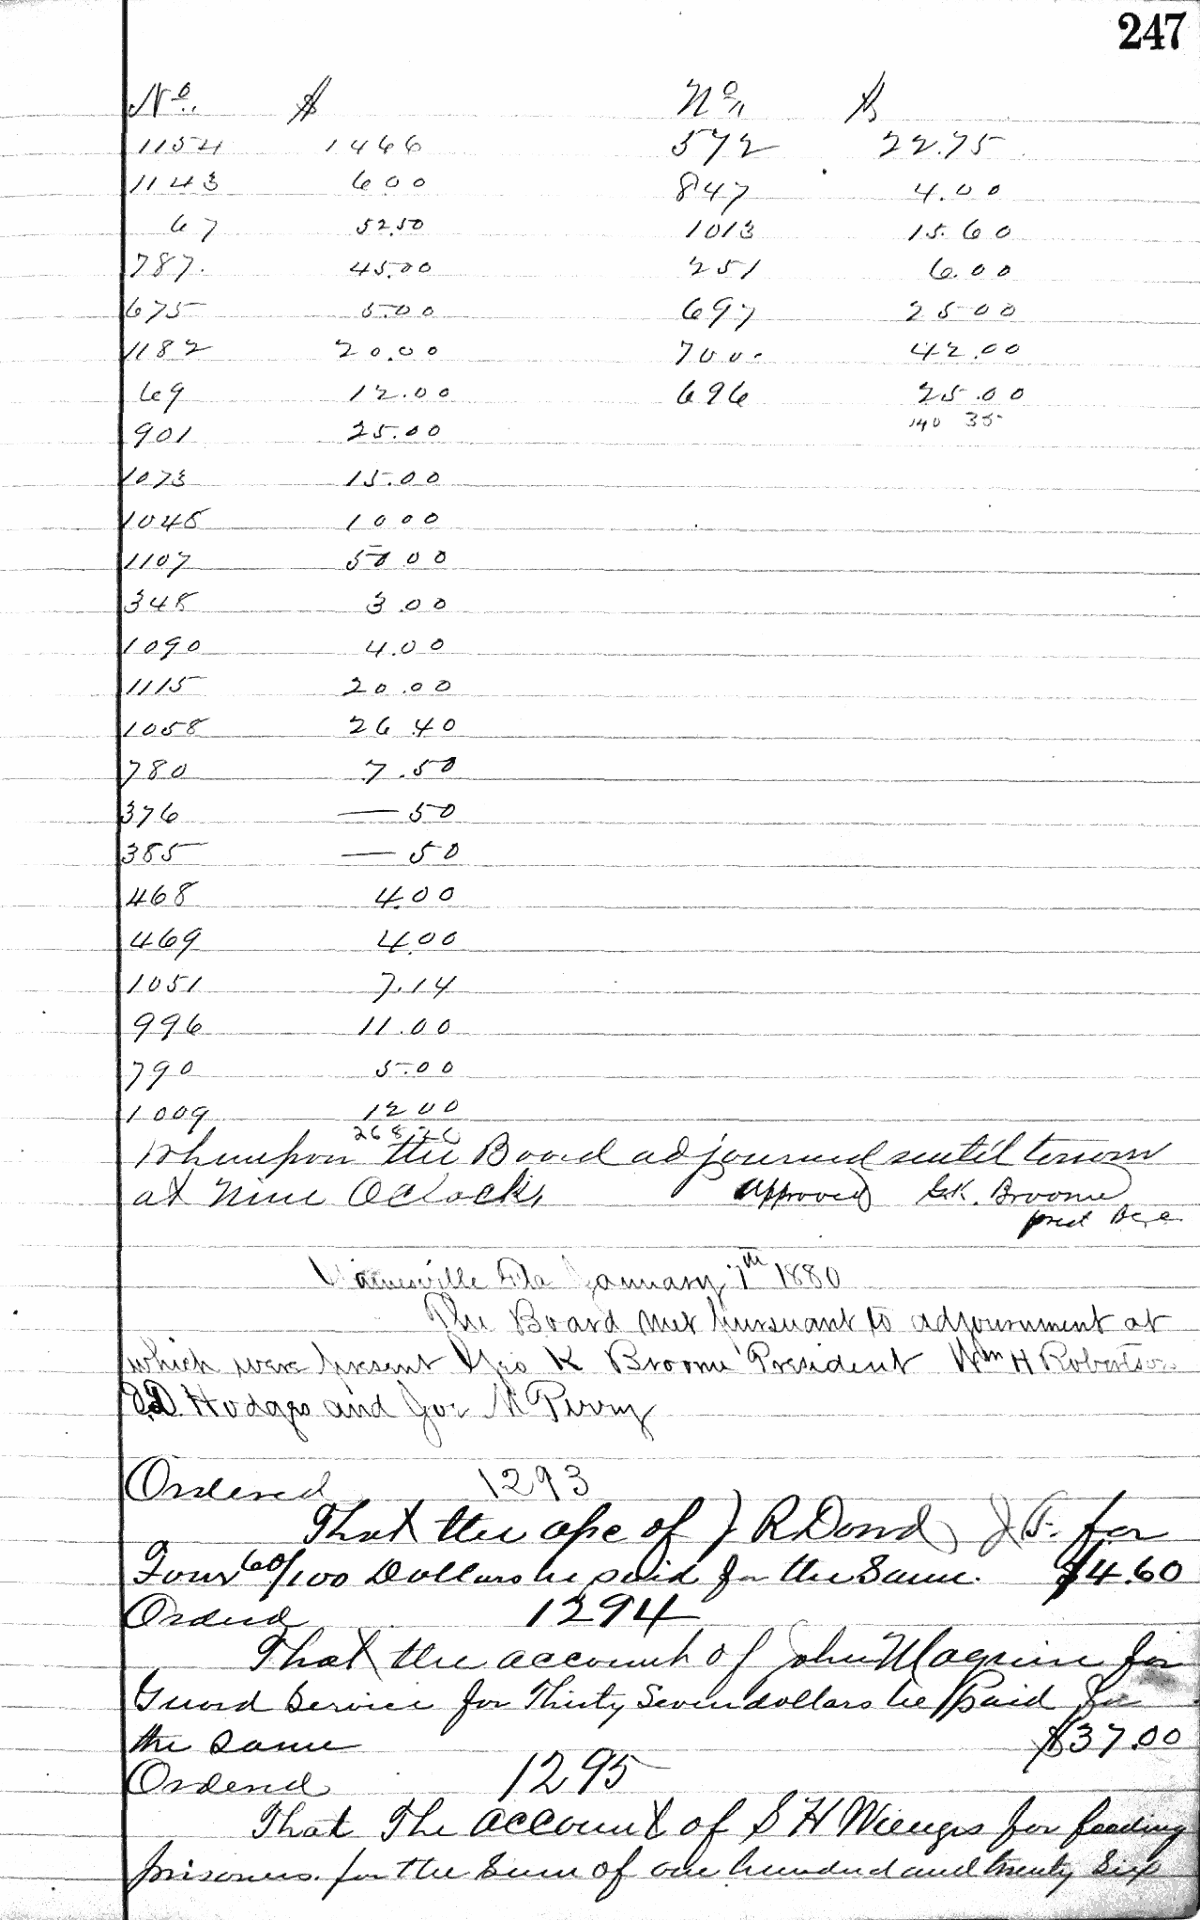 247
No. $ No. $
1154 1466 572 22.75
1143 600 847 4.00
67 52.50 1013 15.60
787. 45.00 251 6.00
675 5.00 697 25 00
1182 20.00 700. 42.00
69 12.00 696 25.00
901 25.00 140 35
1073 15.00
1048 10 00
1107 50 00
348 3.00
1090 4.00
1115 20.00
1058 26 40
780 7.50
376 — 50
385 — 50
468 4.00
469 4.00
1051 7.14
996 11.00
790 5.00
1009 12 00
Whereupon the Board adjourned until
at Nine Oclock, Approved G.K. Broome
prest
Gainesville Fla January 7th 1880
The Board met pursuant to adjournment at
which were present Geo K Broome President Wm H Robertson
Hodges and Joe M Perry
Ordered 1293
That the of J R Dowd J.P. for
Four 60/100 Dollars be paid for the Same. $4.60
Ordered 1294
That the account of John Maguire for
Guard Service for Thirty Seven dollars be Paid for
the same $37.00
Ordered 1295
That The account of S H Wienges for feeding
prisoners. for the Sum of one hundred and twenty Six